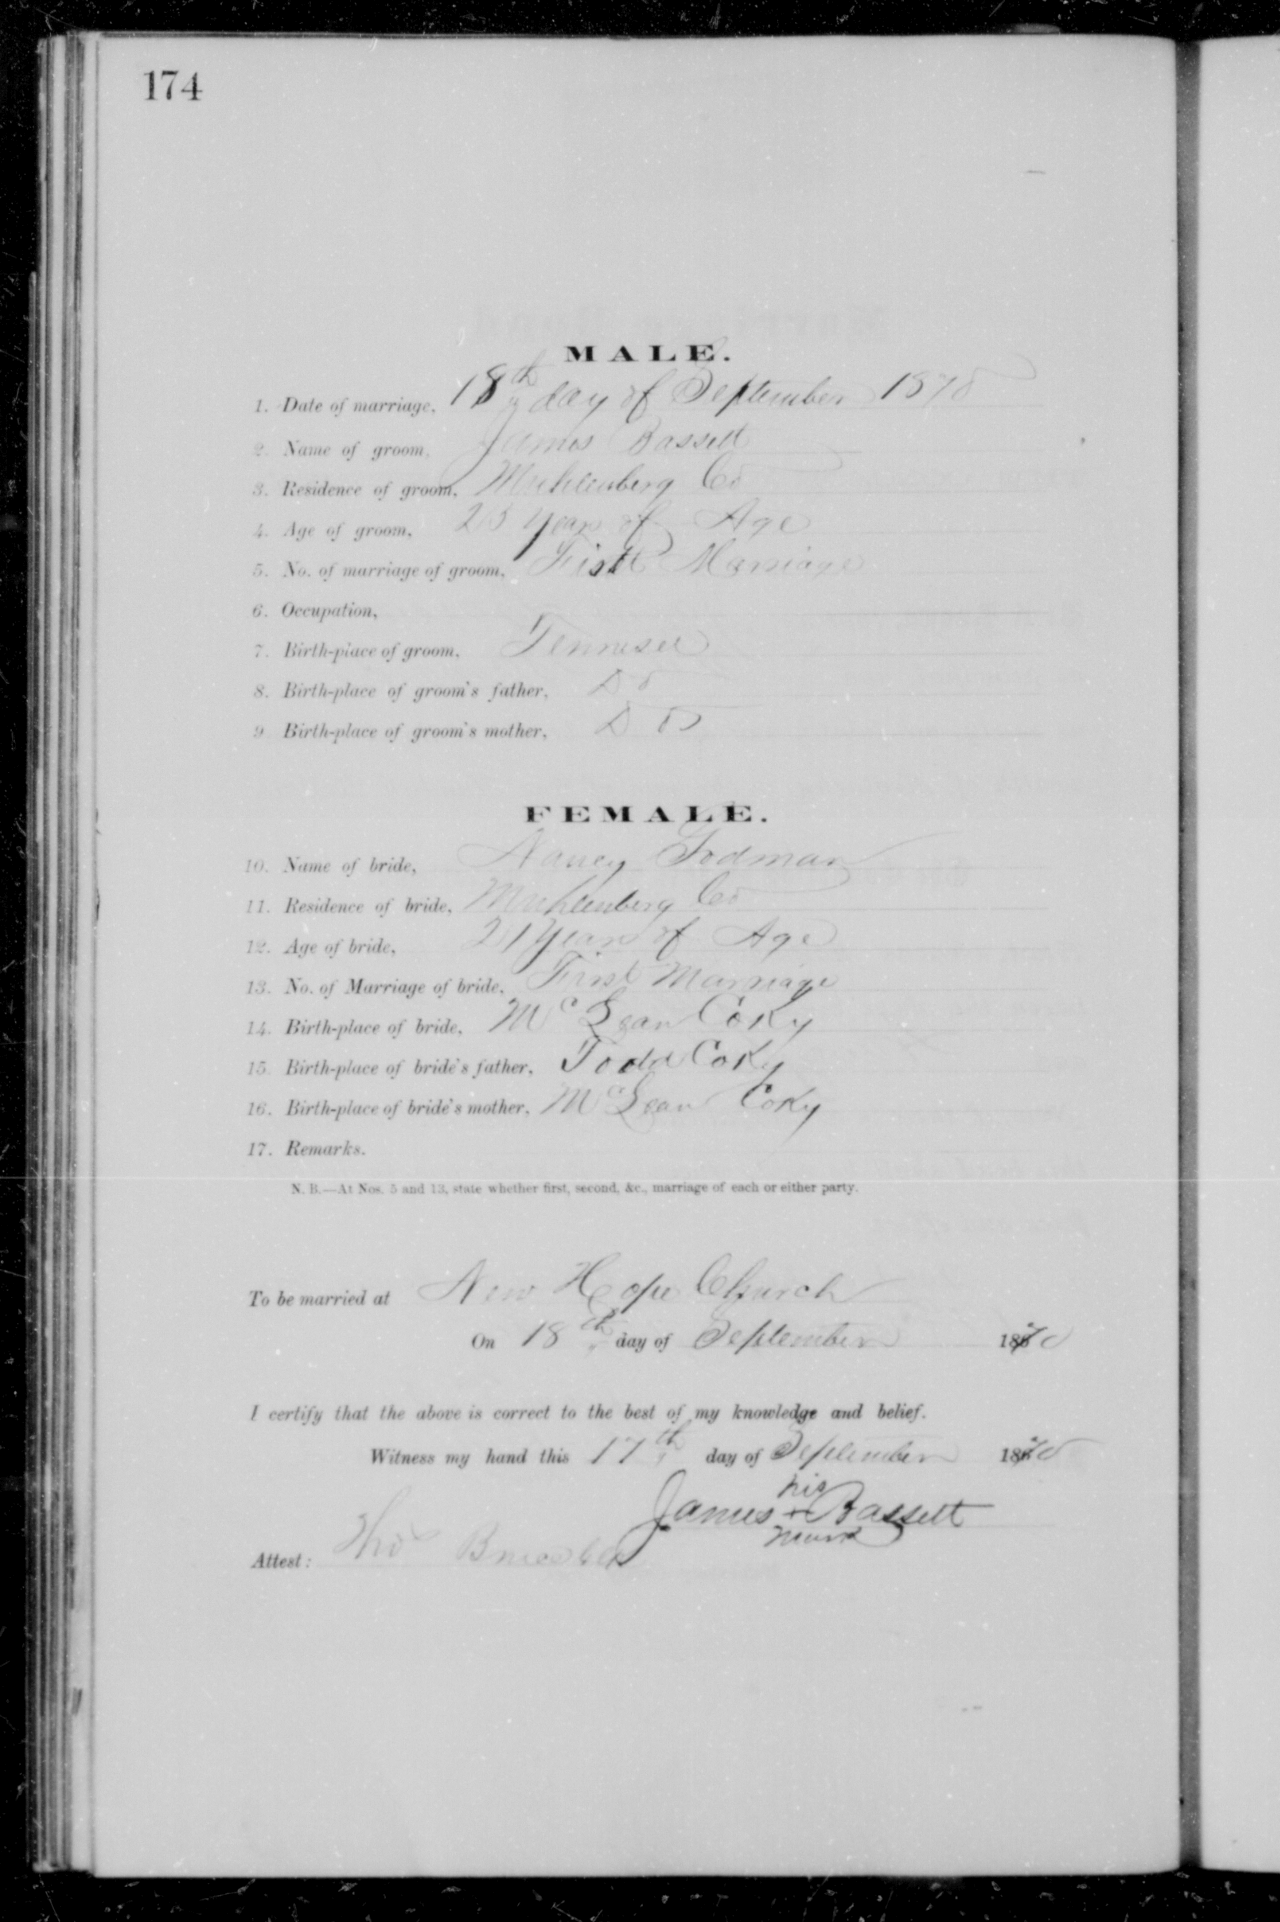 174
MALE.
1. Date of marriage, 18th day of September 1870
2. Name of groom, James Bassett
3. Residence of groom, Muhlenberg Co
4. Age of groom, 23 Years of Age
5. No. of marriage of groom, First Marriage
6. Occupation,
7. Birth-place of groom, Tennisee
8. Birth-place of groom's father, Do
9. Birth-place of groom's mother, Do
FEMALE.
10. Name of bride, Nancy Todman
11. Residence of bride, Muhlenberg Co
12. Age of bride, 21 Years of Age
13. No. of Marriage of bride, First Marriage
14. Birth-place of bride, McLean Co Ky
15. Birth-place of bride's father, Todd Co Ky
16. Birth-place of bride's mother, McLean Co Ky
17. Remarks.
N. B.—At Nos. 5 and 13, state whether first, second, &c., marriage of each or either party.
To be married at New Hope Church
On 18th day of September 1870
I certify that the above is correct to the best of my knowledge and belief.
Witness my hand this 17th day of September 1870
his
James + Bassett
mark
Attest: Tho